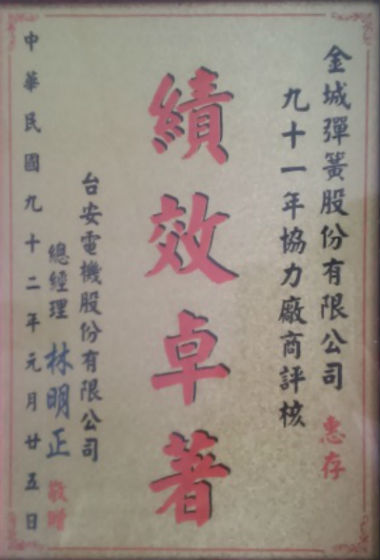 金城彈簧股份有限公司 惠存
九十一年協力廠商評核
績效卓著
台安電機股份有限公司
總經理 林明正 敬贈
中華民國九十二年元月廿五日